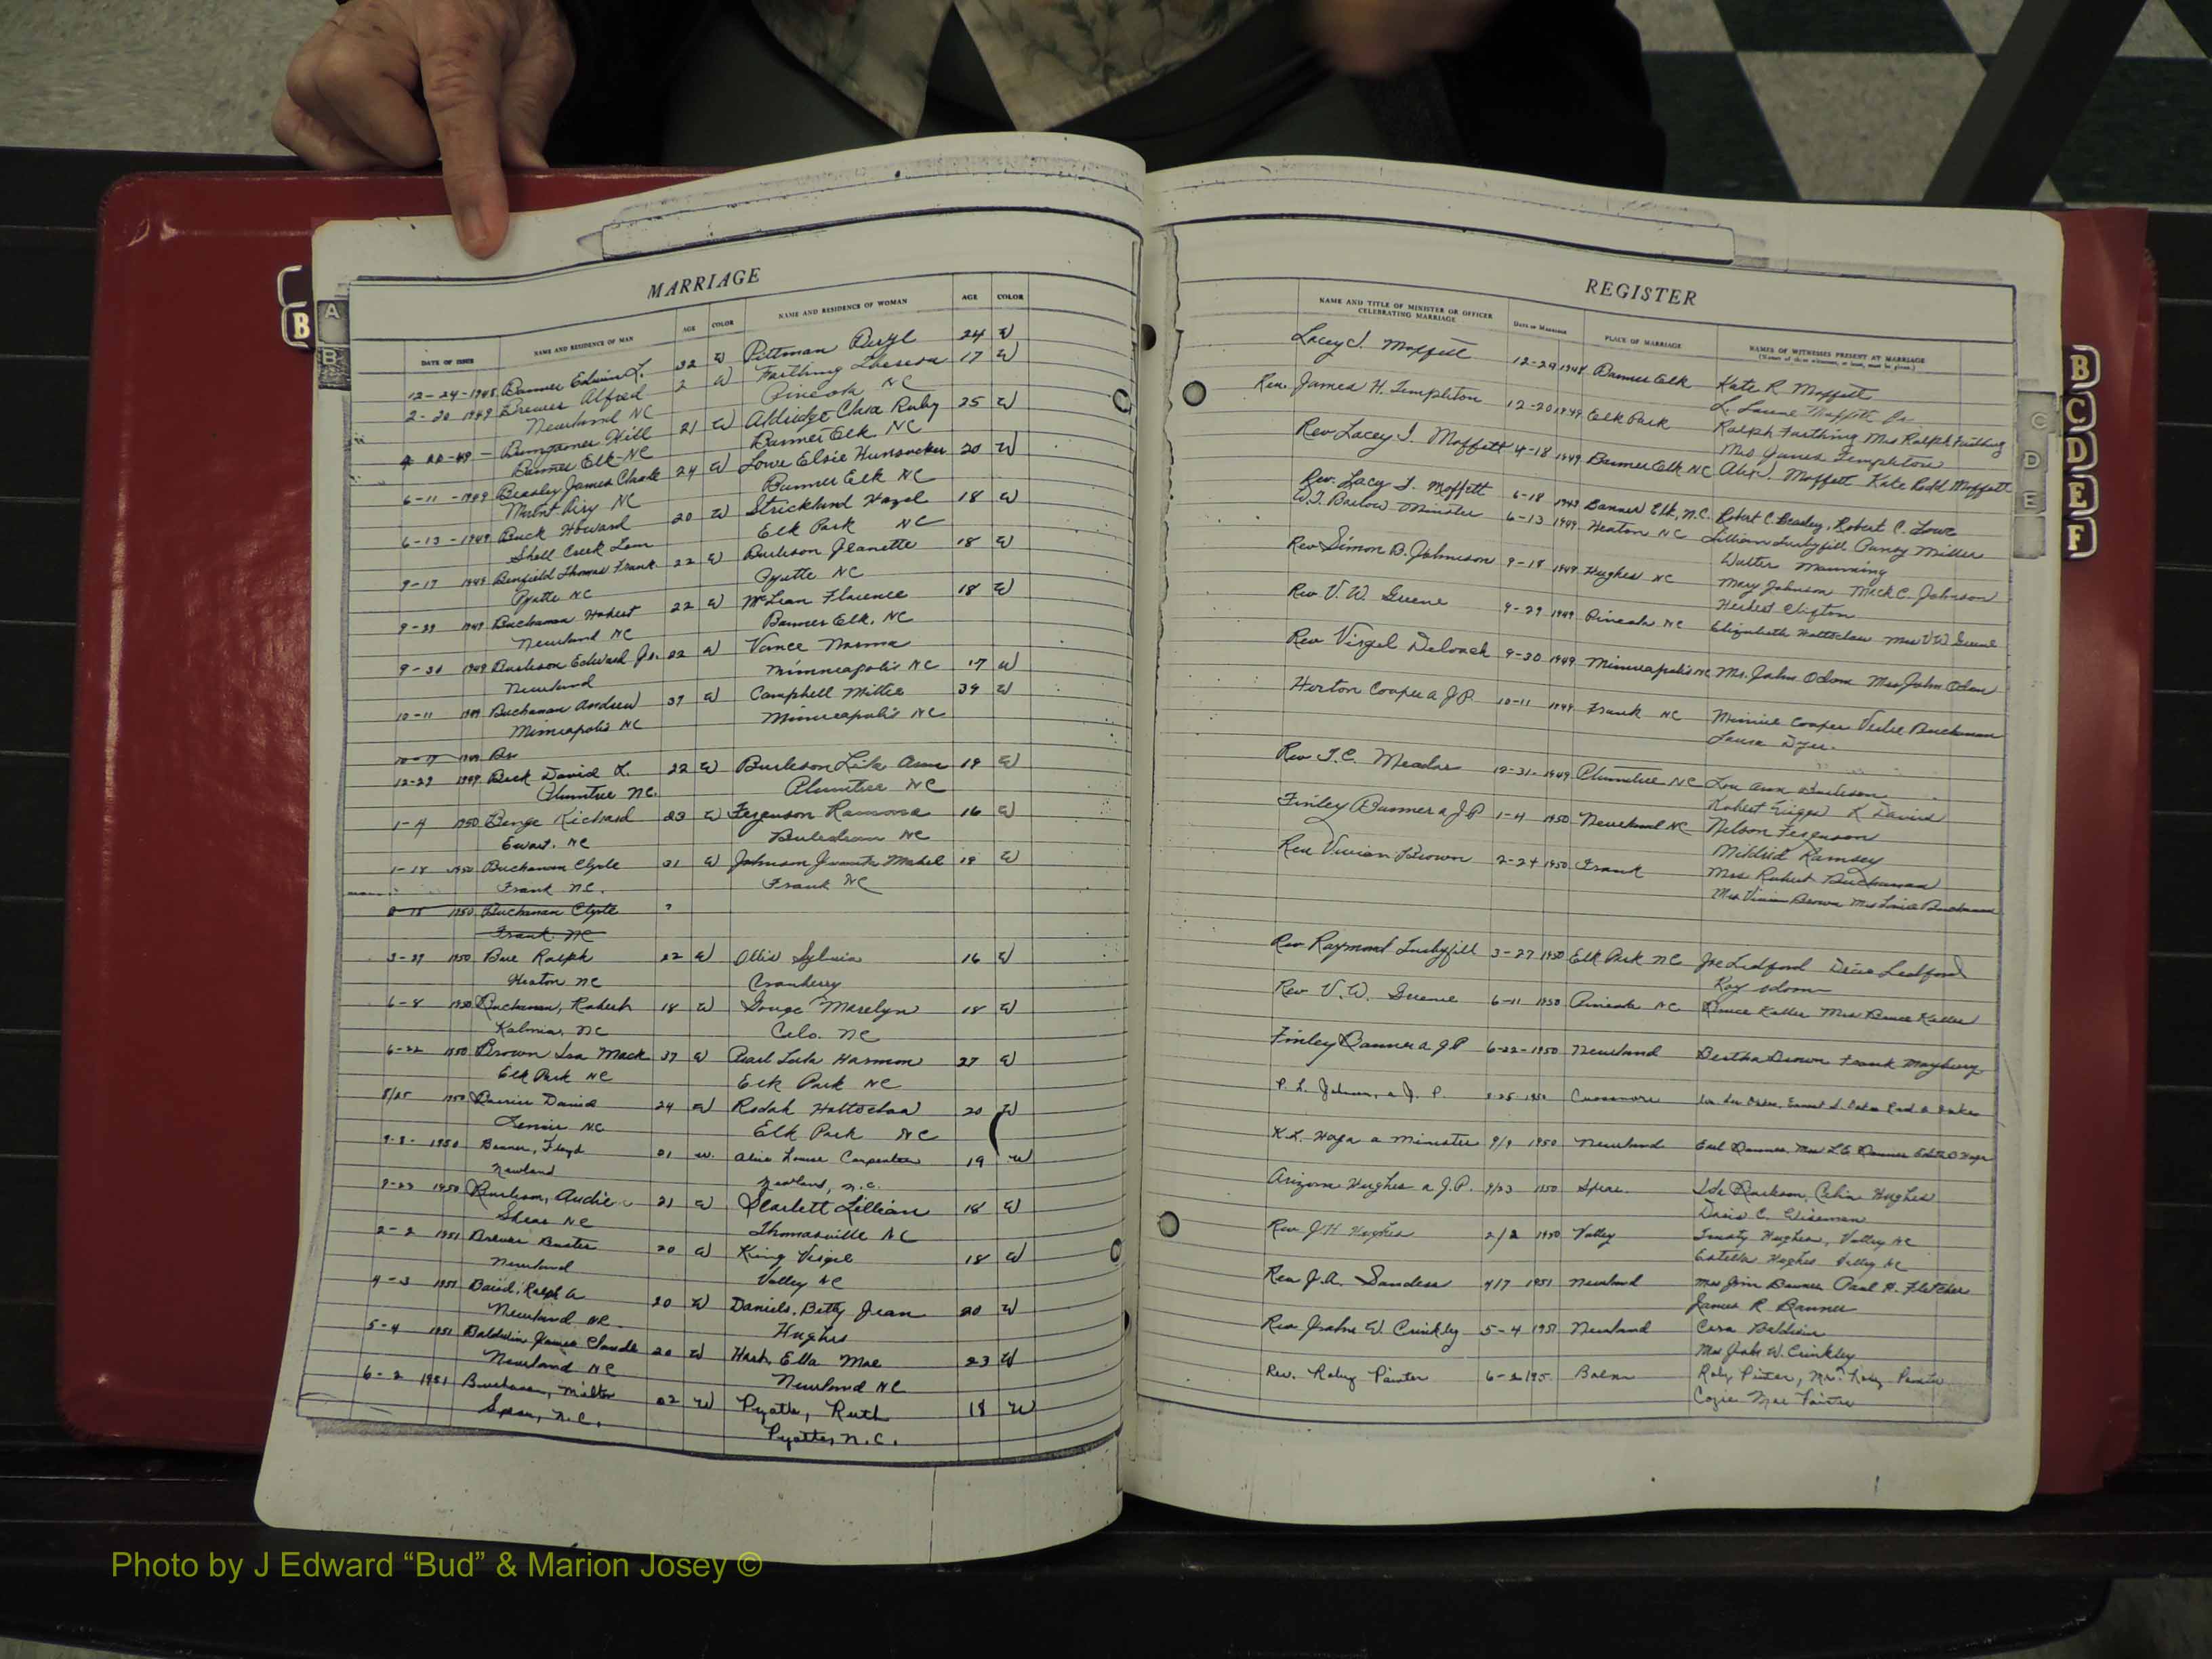 MARRIAGE
DATE OF ISSUE NAME AND RESIDENCE OF MAN AGE COLOR NAME AND RESIDENCE OF WOMAN AGE COLOR
12-24-1948 Banner Edwin L. 22 W Pittman Beryl 24 W
2-20 1949 Brewer Alfred 2 W Farthing Theresa 17 W
Newland NC Pineola NC
Bumgarner Hill 21 W Aldridge Clara Ruby 25 W
Banner Elk NC Banner Elk NC
6-11-1949 Beasley James Clark 24 W Lowe Elsie Hunsucker 20 W
Mount Airy NC Banner Elk NC
6-13-1949 Buck Howard 20 W Strickland Hazel 18 W
Shell Creek Tenn Elk Park NC
9-17 1949 Benfield Thomas Frank 22 W Burleson Jeanette 18 W
Pyatte NC Pyatte NC
9-29 1949 Buchanan Hobert 22 W McLean Florence 18 W
Newland NC Banner Elk, NC
9-30 1949 Burleson Edward Jr. 22 W Vance Norma
Newland Minneapolis NC 17 W
10-11 1949 Buchanan Andrew 39 W Campbell Mittie 39 W
Minneapolis NC Minneapolis NC
1949 Bu
12-29 1949 Buck David L. 22 W Burleson Lila Ann 19 W
Plumtree NC. Plumtree NC
1-4 1950 Benge Richard 23 W Ferguson Ramona 16 W
Ewart. NC NC
1-18 1950 Buchanan Clyde 21 W Johnson Juanita Mabel 19 W
Frank NC. Frank NC
1950 Buchanan Clyde
Frank NC
3-27 1950 Bare Ralph 22 W Ollis Sylvia 16 W
Heaton NC Cranberry
6-8 1950 Buchanan, Robert 18 W Gouge Marelyn 18 W
Kalmia, NC Celo. NC
6-22 1950 Brown Ira Mack 37 W Pearl Lula Harmon 27 W
Elk Park NC Elk Park NC
8/25 1950 Barrier David 24 W Rodah Holtsclaw 20 W
Lenoir NC Elk Park NC
9-8-1950 Banner, Floyd 21 w. Alice Louise Carpenter 19 w
Newland Newland, n.c.
9-23 1950 Burleson, Audie 21 W Scarlett Lillian 18 W
Spear NC Thomasville NC
2-2 1951 Brewer Buster 20 W King Virgie 18 W
Newland Valley NC
4-3 1951 Baird, Ralph A 20 W Daniels, Betty Jean 20 W
Newland NC. Hughes
5-4 1951 Baldwin James Claude 20 W Hark, Ella Mae 23 W
Newland NC Newland NC
6-2 1951 Buchanan, Milton 22 W Pyatte, Ruth 18 W
Spear, N.C. Pyatte, N.C.
REGISTER
NAME AND TITLE OF MINISTER OR OFFICER CELEBRATING MARRIAGE DATE OF MARRIAGE PLACE OF MARRIAGE NAMES OF WITNESSES PRESENT AT MARRIAGE
Lacey I. Moffett 12-29 1948 Banner Elk Kate R Moffett
Rev. James H. Templeton 12-20 1949 Elk Park Ralph Farthing Mrs Ralph Farthing
Mrs James Templeton
Rev Lacey I. Moffett 4-18 1949 Banner Elk NC Alex J. Moffett Kate Rodd Moffett
Rev. Lacy I. Moffett 6-18 1949 Banner Elk, N.C. Robert C. Beasley, Robert C. Lowe
W.T. Barlow Minister 6-13 1949 Heaton NC Lillian Lusbyfill Pansy Miller
Walter Manning
Rev Simon B. Johnson 9-18 1949 Hughes NC Mary Johnson Mack C. Johnson
Herbert Clifton
Rev V. W. Greene 9-29 1949 Pineola NC Elizabeth Holtsclaw Mrs V W Greene
Rev Virgel Deloach 9-30 1949 Minneapolis NC Mr. John Odom Mrs John Odom
Horton Cooper a J.P. 10-11 1949 Frank NC Minnie Cooper Verlie Buchanan
Dyer.
Rev T.C. Meador 12-31-1949 Plumtree NC Lou Ann Burleson
Robert Griggs K Davis
Finley Banner a J P 1-4 1950 Newland NC Nelson Ferguson
Mildrid Ramsey
Rev Vivian Brown 2-24 1950 Frank Mrs Robert Buchanan
Mrs Vivian Brown Mrs Buchanan
Rev Raymond Lusbyfill 3-27 1950 Elk Park NC Joe Ledford Ledford
Roy Odom
Rev V. W. Greene 6-11 1950 Pineola NC Bruce Kaller Mrs Bruce Kaller
Finley Banner a J P 6-22-1950 Newland Bertha Brown Frank Mayberry
P. L. Johnson, a J. P. 8-25 1950 Crossnore
K.L. Haga a Minister 9/9 1950 Newland Earl Banner, Mrs L.E. Banner
Arizona Hughes a J.P. 9/23 1950 Spear. Ida Burleson, Celia Hughes
Doris C. Wiseman
Rev J H Hughes 2/2 1950 Valley Trusty Hughes, Valley NC
Estella Hughes Valley NC
Rev J.A. Sanders 4/7 1951 Newland Mrs Jim Banner Paul H. Fletcher
James R Banner
Rev John W. Crinkley 5-4 1951 Newland Cora Baldwin
Mrs John W. Crinkley
Rev. Roby Painter 6-2 195 Roby Painter, Mrs. Roby Painter
Cozie Mae Painter
A
B
B
C
D
E
B
C
D
E
F
Photo by J Edward “Bud” & Marion Josey ©